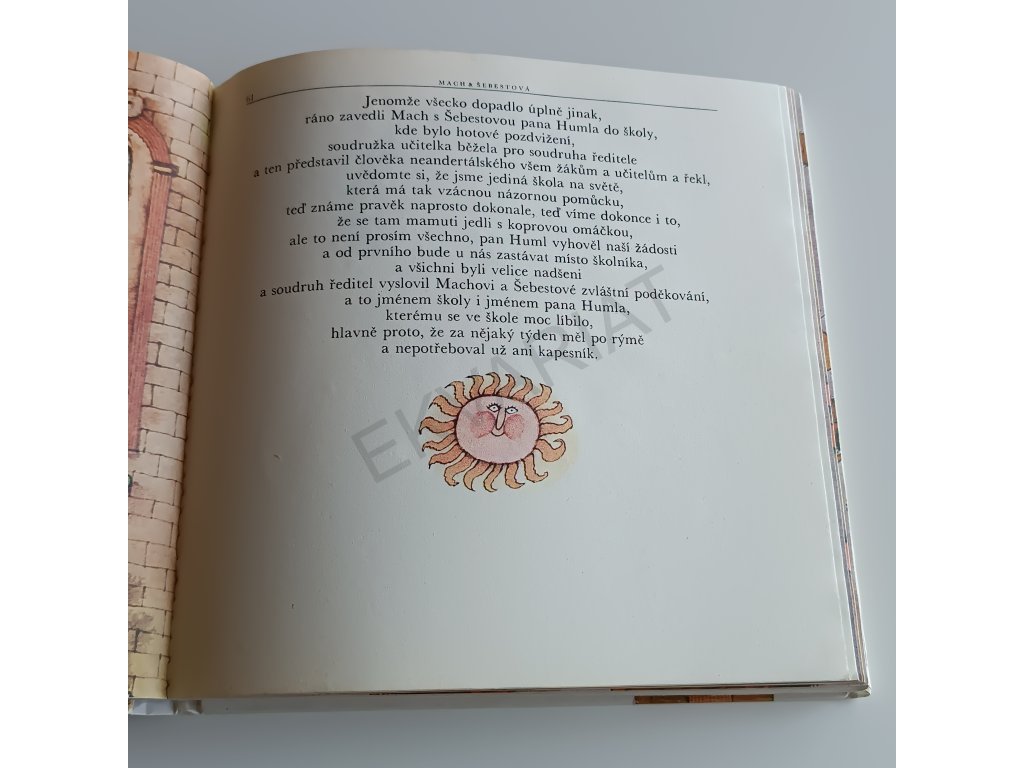 MACH & ŠEBESTOVÁ
64
Jenomže všecko dopadlo úplně jinak,
ráno zavedli Mach s Šebestovou pana Humla do školy,
kde bylo hotové pozdvižení,
soudružka učitelka běžela pro soudruha ředitele
a ten představil člověka neandertálského všem žákům a učitelům a řekl,
uvědomte si, že jsme jediná škola na světě,
která má tak vzácnou názornou pomůcku,
teď známe pravěk naprosto dokonale, teď víme dokonce i to,
že se tam mamuti jedli s koprovou omáčkou,
ale to není prosím všechno, pan Huml vyhověl naší žádosti
a od prvního bude u nás zastávat místo školníka,
a všichni byli velice nadšeni
a soudruh ředitel vyslovil Machovi a Šebestové zvláštní poděkování,
a to jménem školy i jménem pana Humla,
kterému se ve škole moc líbilo,
hlavně proto, že za nějaký týden měl po rýmě
a nepotřeboval už ani kapesník.
EKVARIAT